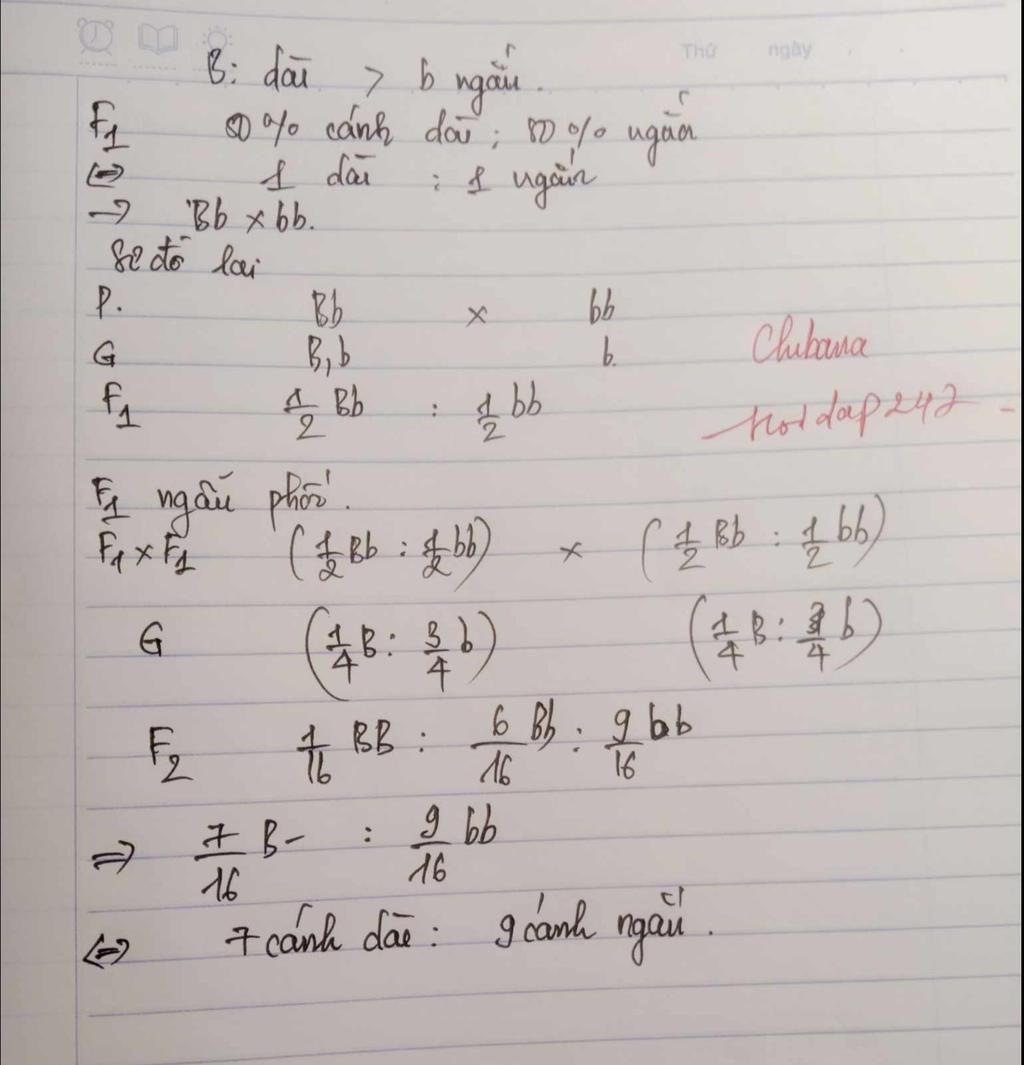 Thứ ngày
B: dài > b ngắn.
F1 50% cánh dài; 50% ngắn
<=> 1 dài : 1 ngắn
-> Bb x bb.
Sơ đồ lai
P. Bb x bb
G B, b b.
F1 1/2 Bb : 1/2 bb
Chibana
Hoidap247
F1 ngẫu phối.
F1 x F1 (1/2 Bb : 1/2 bb) x (1/2 Bb : 1/2 bb)
G (1/4 B : 3/4 b) (1/4 B : 3/4 b)
F2 1/16 BB : 6/16 Bb : 9/16 bb
=> 7/16 B- : 9/16 bb
<=> 7 cánh dài : 9 cánh ngắn.